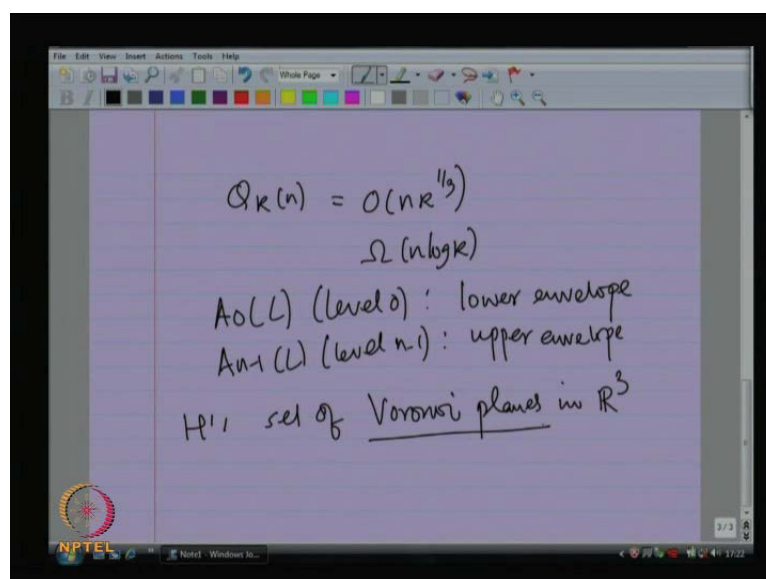 File Edit View Insert Actions Tools Help
Whole Page
B I
Q_K(n) = O(nK^{1/3})
Ω(n log K)
A_0(L) (level 0) : lower envelope
A_{n-1}(L) (level n-1) : upper envelope
H : set of Voronoi planes in R^3
3/3
NPTEL
Note1 - Windows Jo...
17:22